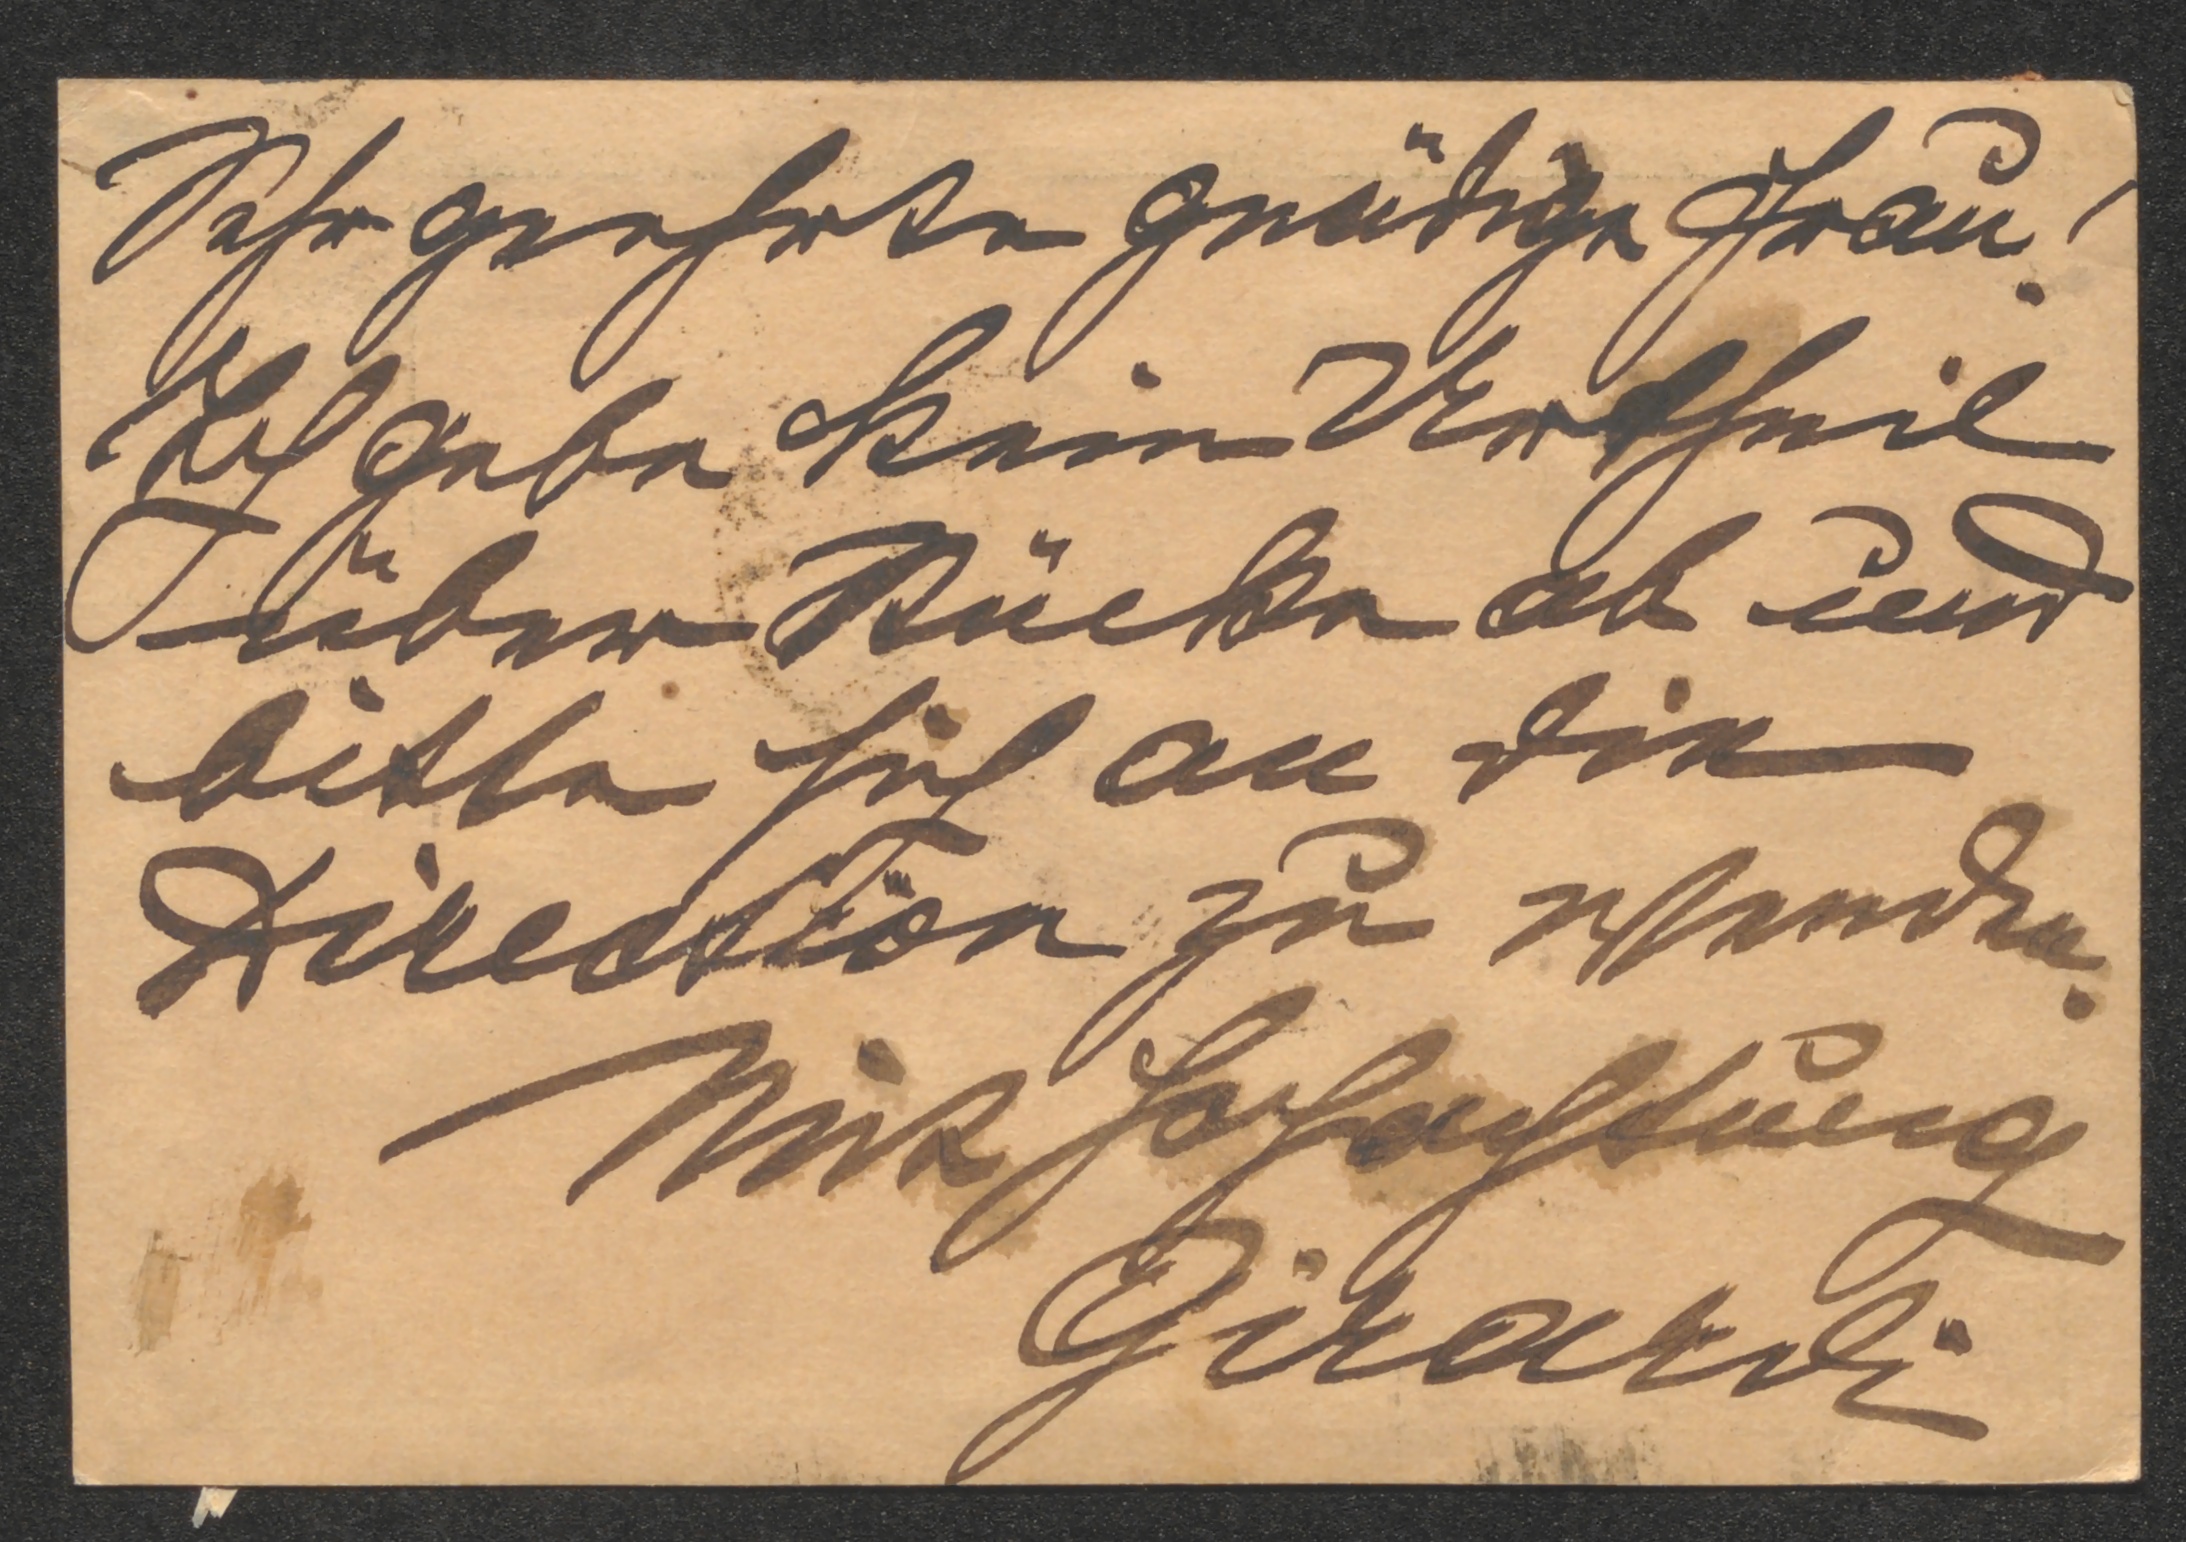 Sehr geehrte gnädige Frau!
Ich gebe kein Urtheil
über Stücke ab und
bitte sich an die
Direction zu wenden.
Mit Hochachtung
Girardi